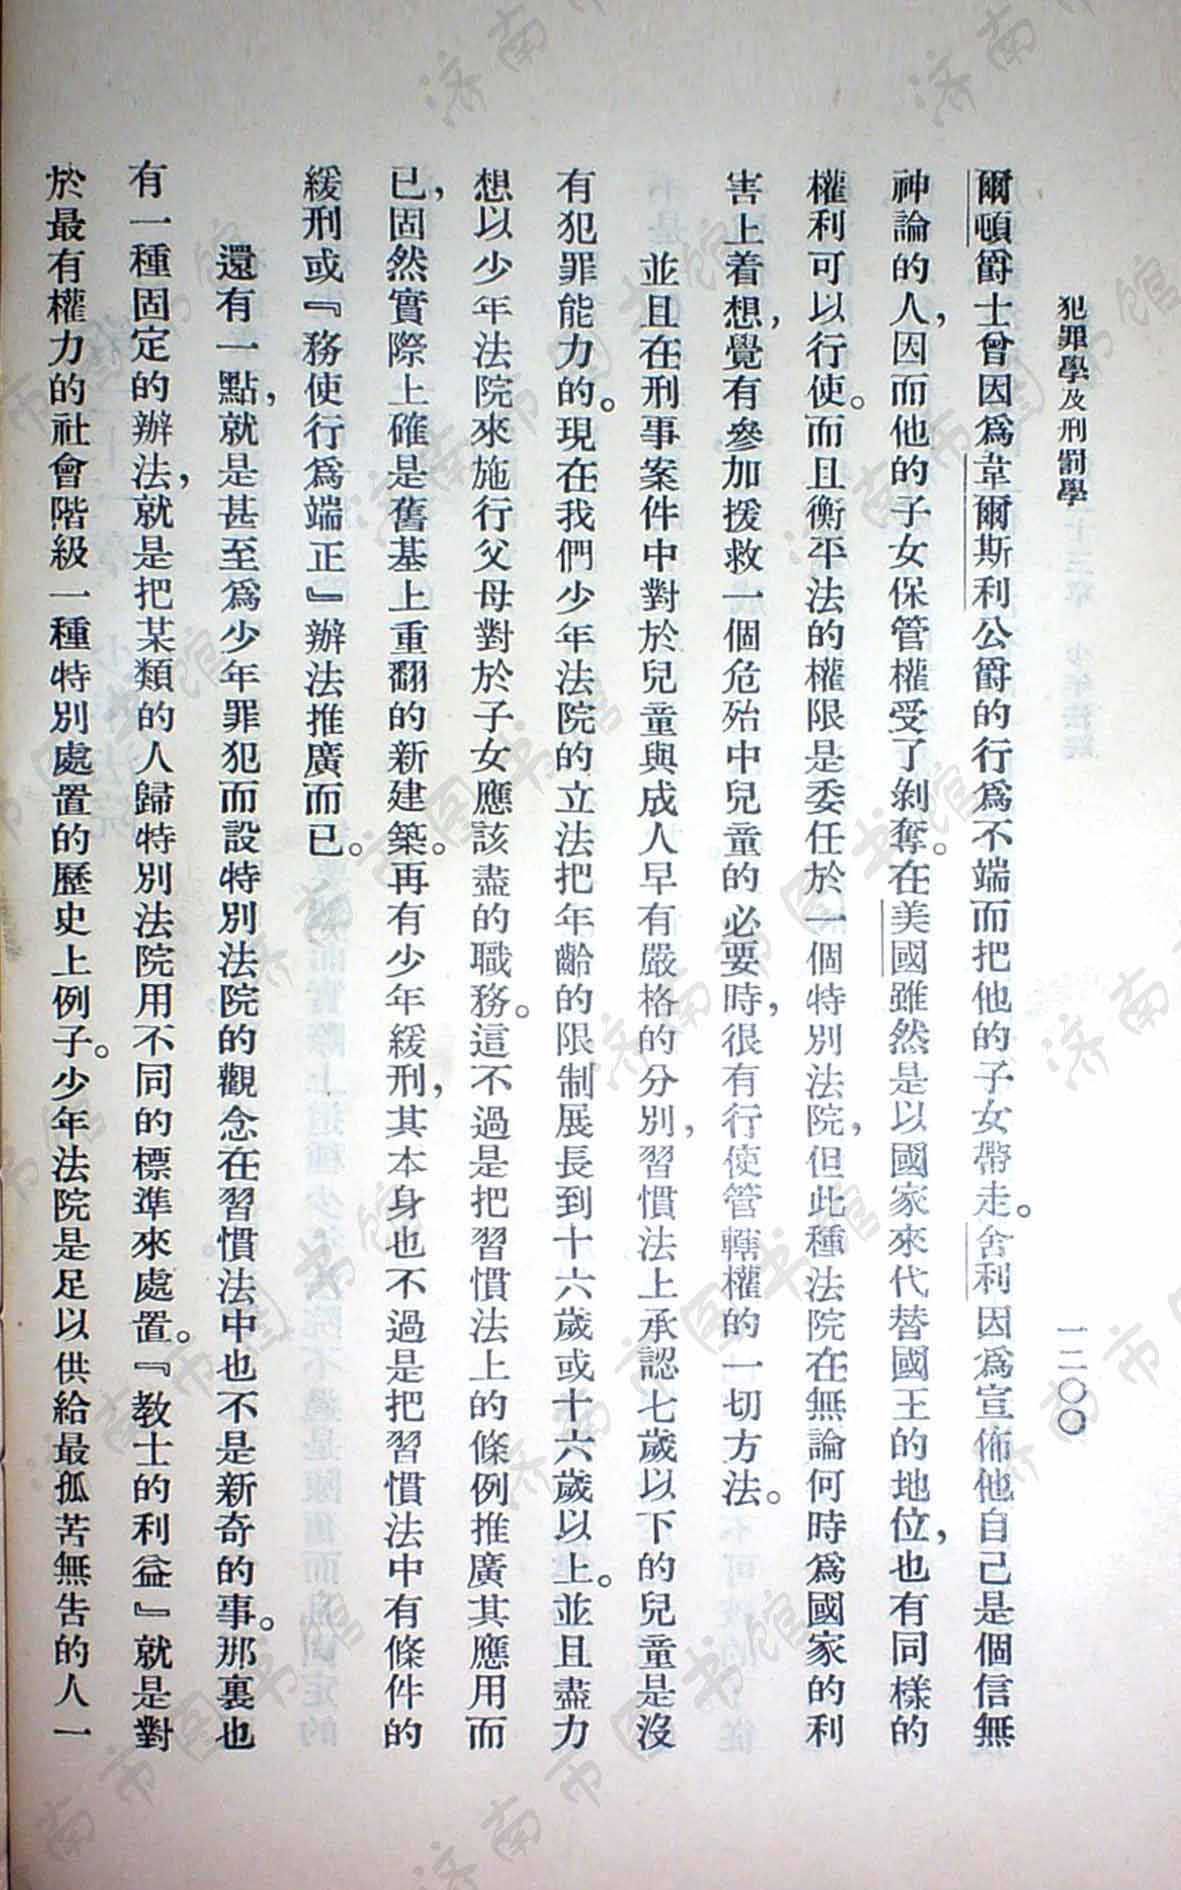 犯罪學及刑罰學
一二〇〇
爾頓爵士曾因爲韋爾斯利公爵的行爲不端而把他的子女帶走。舍利因爲宣佈他自己是個信無
神論的人，因而他的子女保管權受了剝奪。在美國雖然是以國家來代替國王的地位，也有同樣的
權利可以行使。而且衡平法的權限是委任於一個特別法院，但此種法院在無論何時爲國家的利
害上着想，覺有參加援救一個危殆中兒童的必要時，很有行使管轄權的一切方法。
並且在刑事案件中對於兒童與成人早有嚴格的分別，習慣法上承認七歲以下的兒童是沒
有犯罪能力的。現在我們少年法院的立法把年齡的限制展長到十六歲或十六歲以上。並且盡力
想以少年法院來施行父母對於子女應該盡的職務。這不過是把習慣法上的條例推廣其應用而
已，固然實際上確是舊基上重翻的新建築。再有少年緩刑，其本身也不過是把習慣法中有條件的
緩刑或『務使行爲端正』辦法推廣而已。
還有一點，就是甚至爲少年罪犯而設特別法院的觀念在習慣法中也不是新奇的事。那裏也
有一種固定的辦法，就是把某類的人歸特別法院用不同的標準來處置。『教士的利益』就是對
於最有權力的社會階級一種特別處置的歷史上例子。少年法院是足以供給最孤苦無告的人一